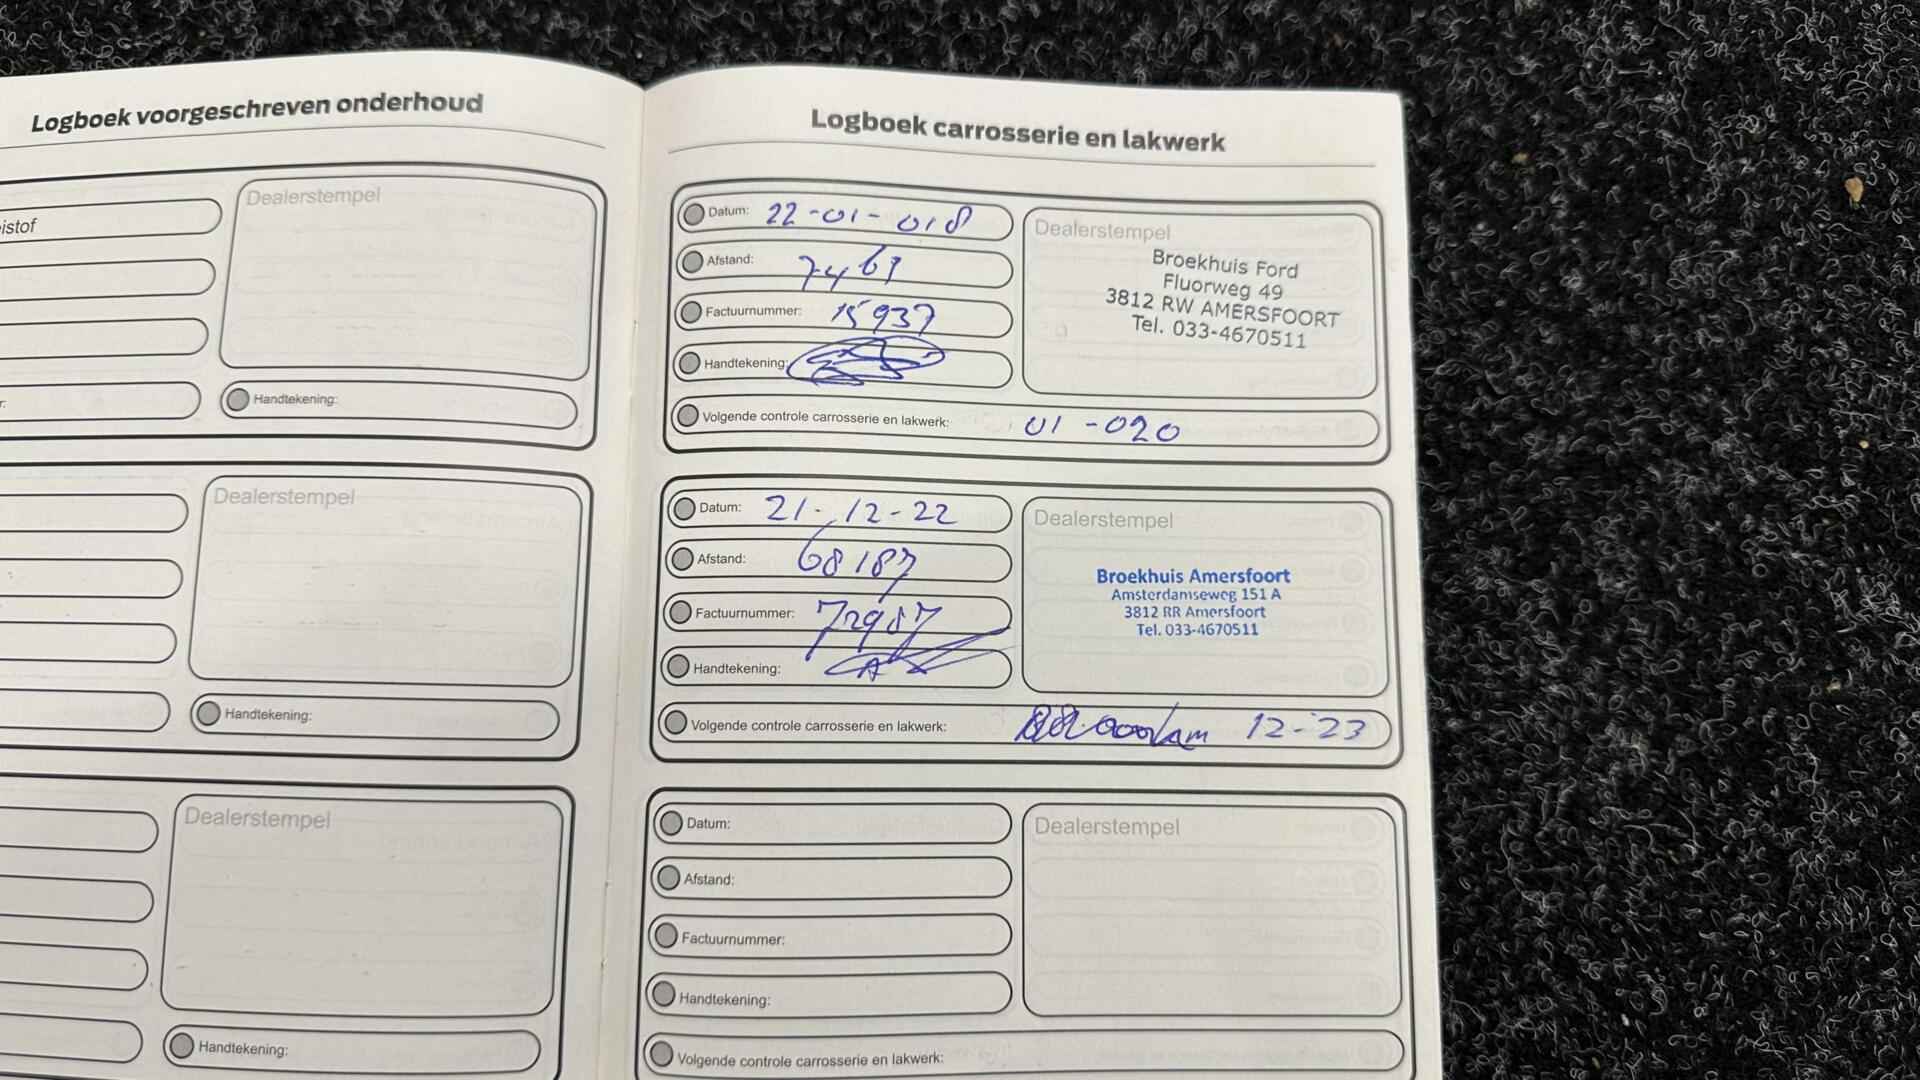 Logboek voorgeschreven onderhoud
istof
Dealerstempel
r:
Handtekening:
Dealerstempel
Handtekening:
Dealerstempel
Handtekening:
Logboek carrosserie en lakwerk
Datum: 22-01-018
Afstand:
Factuurnummer: 15937
Handtekening:
Dealerstempel
Broekhuis Ford
Fluorweg 49
3812 RW AMERSFOORT
Tel. 033-4670511
Volgende controle carrosserie en lakwerk: 01-020
Datum: 21-12-22
Afstand: 68187
Factuurnummer: 72987
Handtekening:
Dealerstempel
Broekhuis Amersfoort
Amsterdamseweg 151 A
3812 RR Amersfoort
Tel. 033-4670511
Volgende controle carrosserie en lakwerk: 12-23
Datum:
Afstand:
Factuurnummer:
Handtekening:
Dealerstempel
Volgende controle carrosserie en lakwerk: